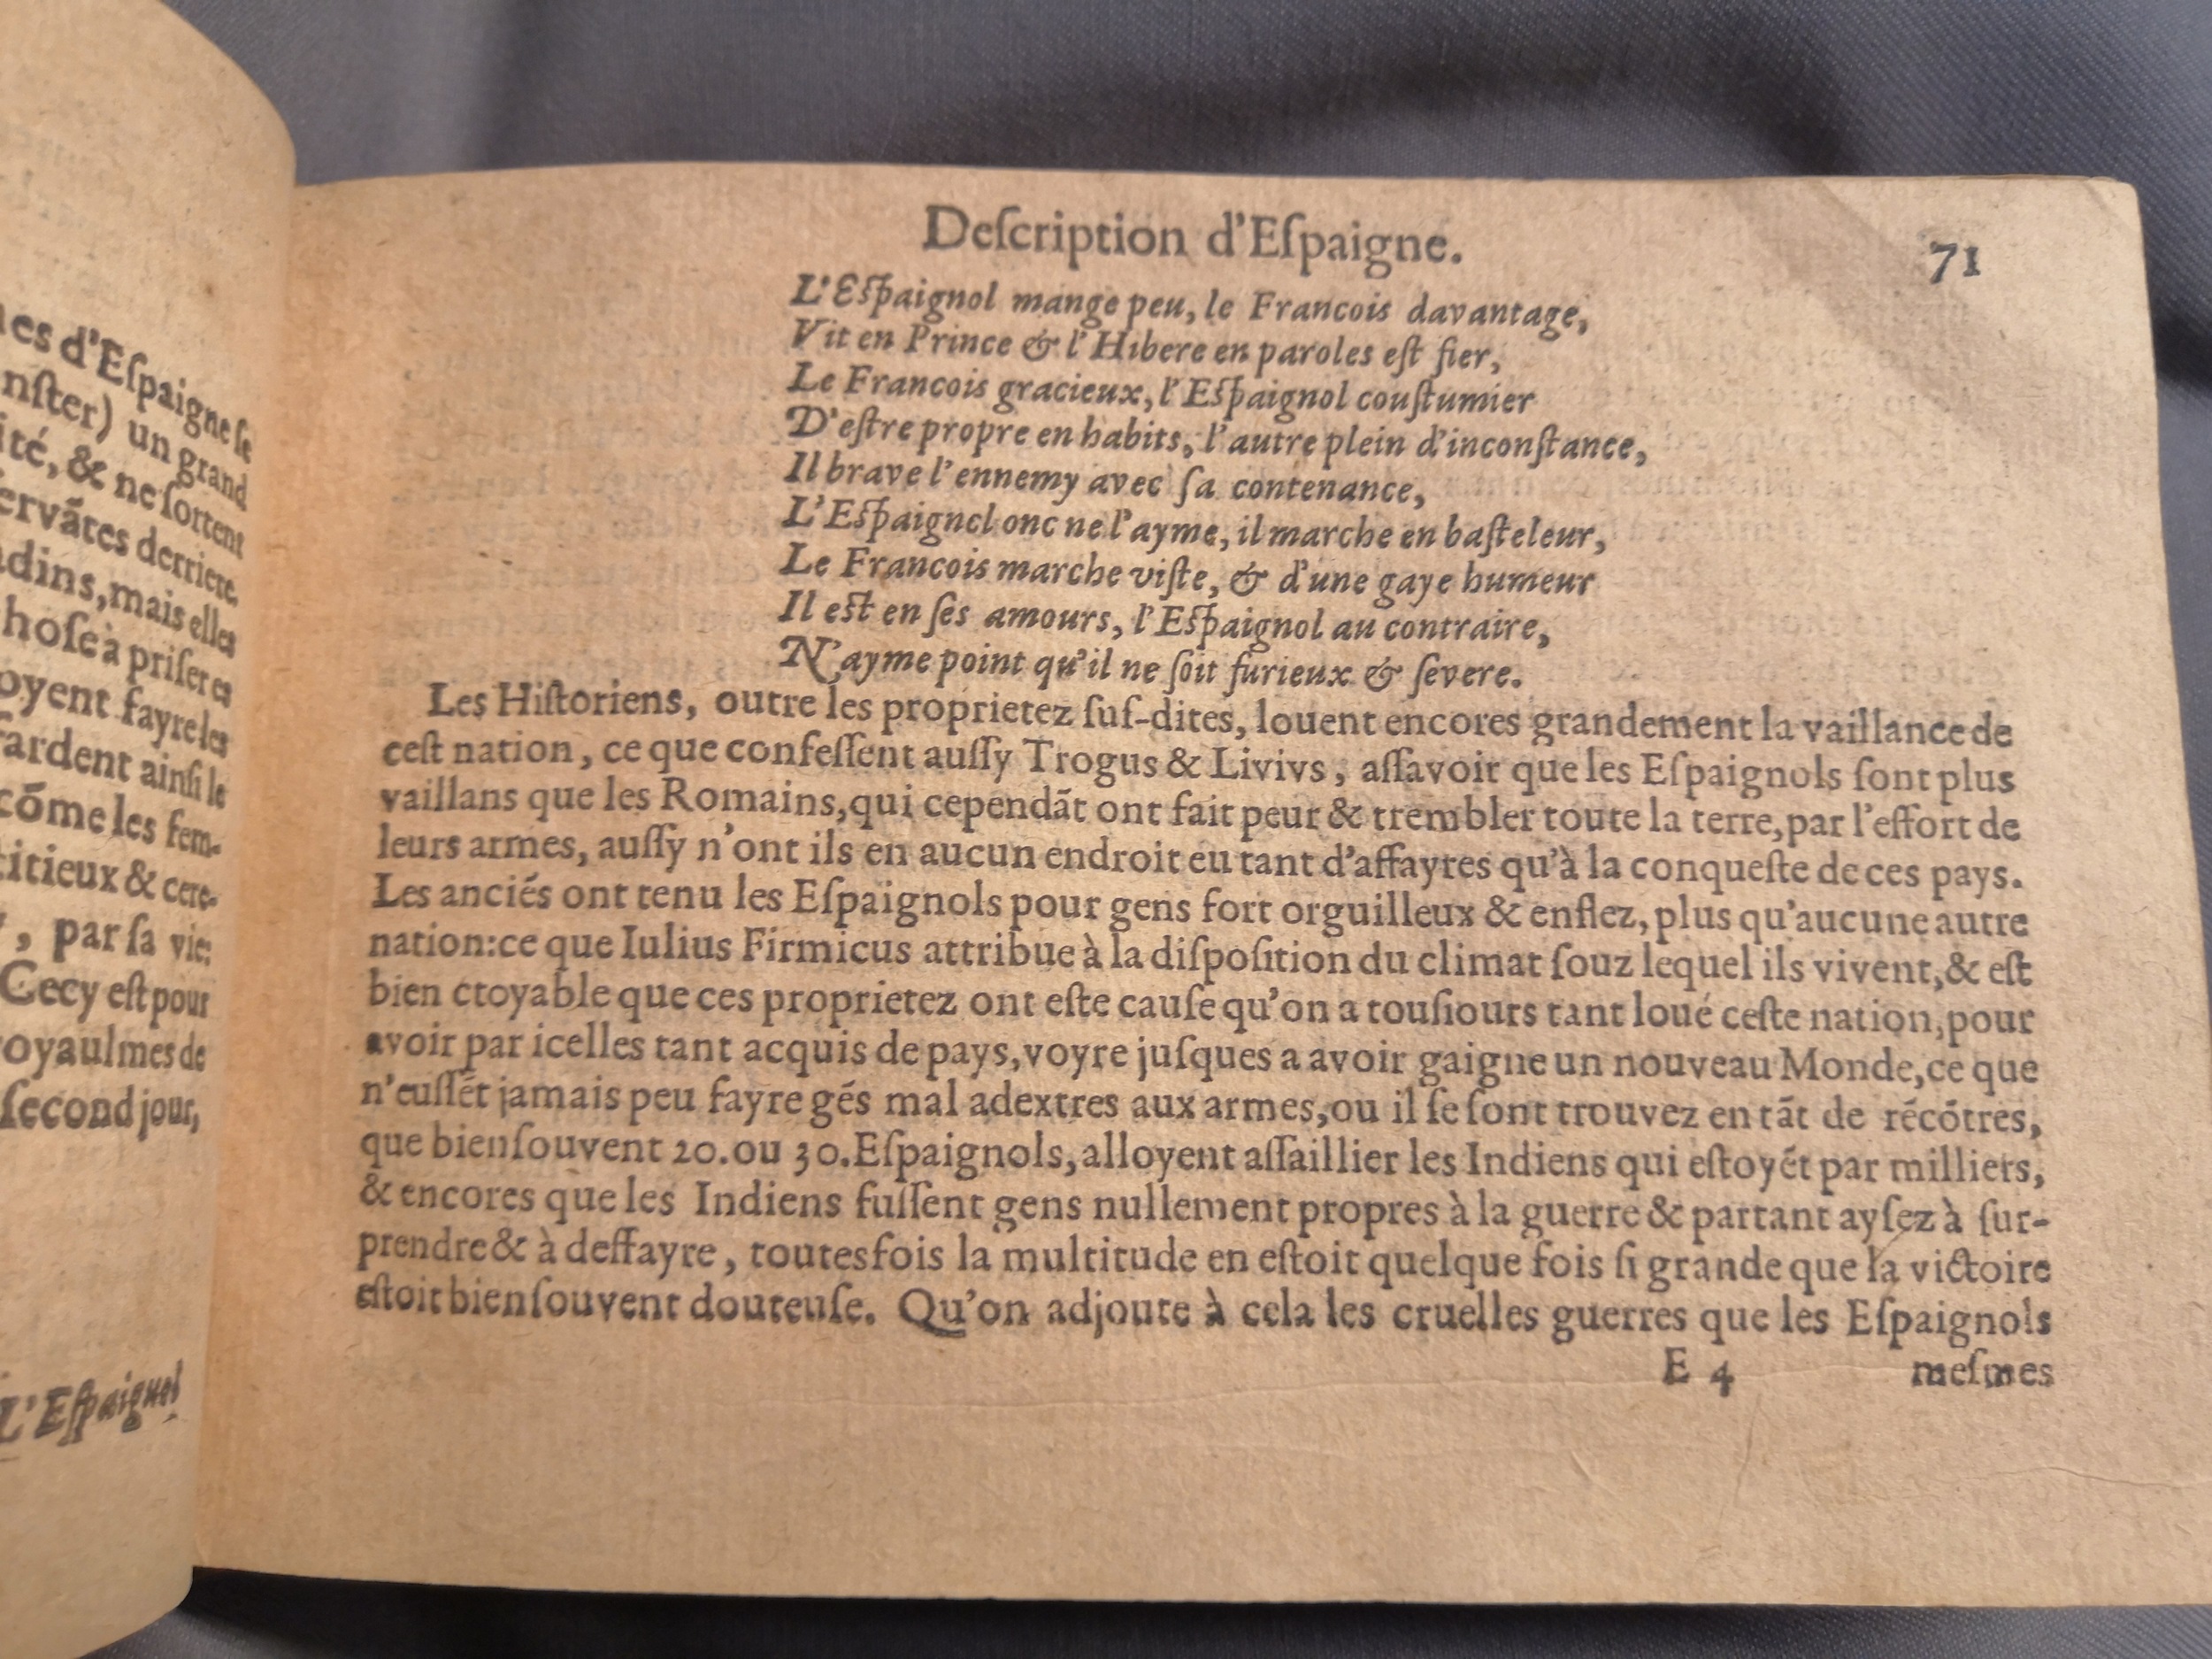 nes d'Eſpaigne ſe
nſter) un grand
ité, & ne ſortent
ervãtes derriere.
adins, mais elles
hoſe à priſer es
oyent fayre les
ardent ainſi le
cõme les fem-
titieux & cere-
, par ſa vie:
Cecy eſt pour
oyaulmes de
ſecond jour,
L'Eſpaignol
Deſcription d'Eſpaigne.
71
L'Eſpaignol mange peu, le Francois davantage,
Vit en Prince & l'Hibere en paroles eſt fier,
Le Francois gracieux, l'Eſpaignol couſtumier
D'eſtre propre en habits, l'autre plein d'inconſtance,
Il brave l'ennemy avec ſa contenance,
L'Eſpaigncl onc ne l'ayme, il marche en baſteleur,
Le Francois marche viſte, & d'une gaye humeur
Il eſt en ſes amours, l'Eſpaignol au contraire,
N'ayme point qu'il ne ſoit furieux & ſevere.
Les Hiſtoriens, outre les proprietez ſuſ-dites, louent encores grandement la vaillance de
ceſt nation, ce que confeſſent auſſy Trogus & Livivs, aſſavoir que les Eſpaignols ſont plus
vaillans que les Romains, qui cependãt ont fait peur & trembler toute la terre, par l'effort de
leurs armes, auſſy n'ont ils en aucun endroit eu tant d'affayres qu'à la conqueſte de ces pays.
Les anciẽs ont tenu les Eſpaignols pour gens fort orguilleux & enflez, plus qu'aucune autre
nation: ce que Iulius Firmicus attribue à la diſpoſition du climat ſouz lequel ils vivent, & eſt
bien ctoyable que ces proprietez ont eſte cauſe qu'on a touſiours tant loué ceſte nation, pour
avoir par icelles tant acquis de pays, voyre juſques a avoir gaigne un nouveau Monde, ce que
n'euſſẽt jamais peu fayre gẽs mal adextres aux armes, ou il ſe ſont trouvez en tãt de rẽcõtres,
que bien ſouvent 20. ou 30. Eſpaignols, alloyent aſſaillier les Indiens qui eſtoyẽt par milliers,
& encores que les Indiens fuſſent gens nullement propres à la guerre & partant ayſez à ſur-
prendre & à deffayre, toutesfois la multitude en eſtoit quelque fois ſi grande que la victoire
eſtoit bien ſouvent douteuſe. Qu'on adjoute à cela les cruelles guerres que les Eſpaignols
E 4
meſmes